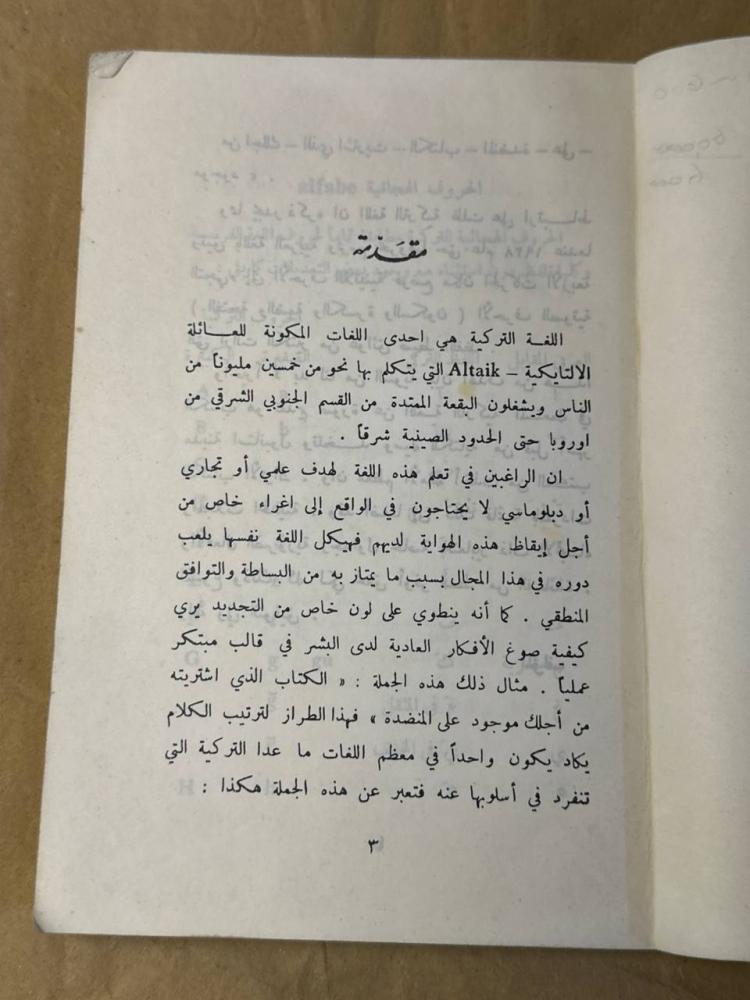 مقدمة
اللغة التركية هي احدى اللغات المكونة للعائلة
الالتايكية – Altaik التي يتكلم بها نحو من خمسين مليوناً من
الناس ويشغلون البقعة الممتدة من القسم الجنوبي الشرقي من
اوروبا حتى الحدود الصينية شرقاً .
ان الراغبين في تعلم هذه اللغة لهدف علمي أو تجاري
أو دبلوماسي لا يحتاجون في الواقع إلى اغراء خاص من
أجل إيقاظ هذه الهواية لديهم فهيكل اللغة نفسها يلعب
دوره في هذا المجال بسبب ما يمتاز به من البساطة والتوافق
المنطقي . كما أنه ينطوي على لون خاص من التجديد يري
كيفية صوغ الأفكار العادية لدى البشر في قالب مبتكر
عملياً . مثال ذلك هذه الجملة : « الكتاب الذي اشتريته
من أجلك موجود على المنضدة » فهذا الطراز لترتيب الكلام
يكاد يكون واحداً في معظم اللغات ما عدا التركية التي
تنفرد في أسلوبها عنه فتعبر عن هذه الجملة هكذا :
٣